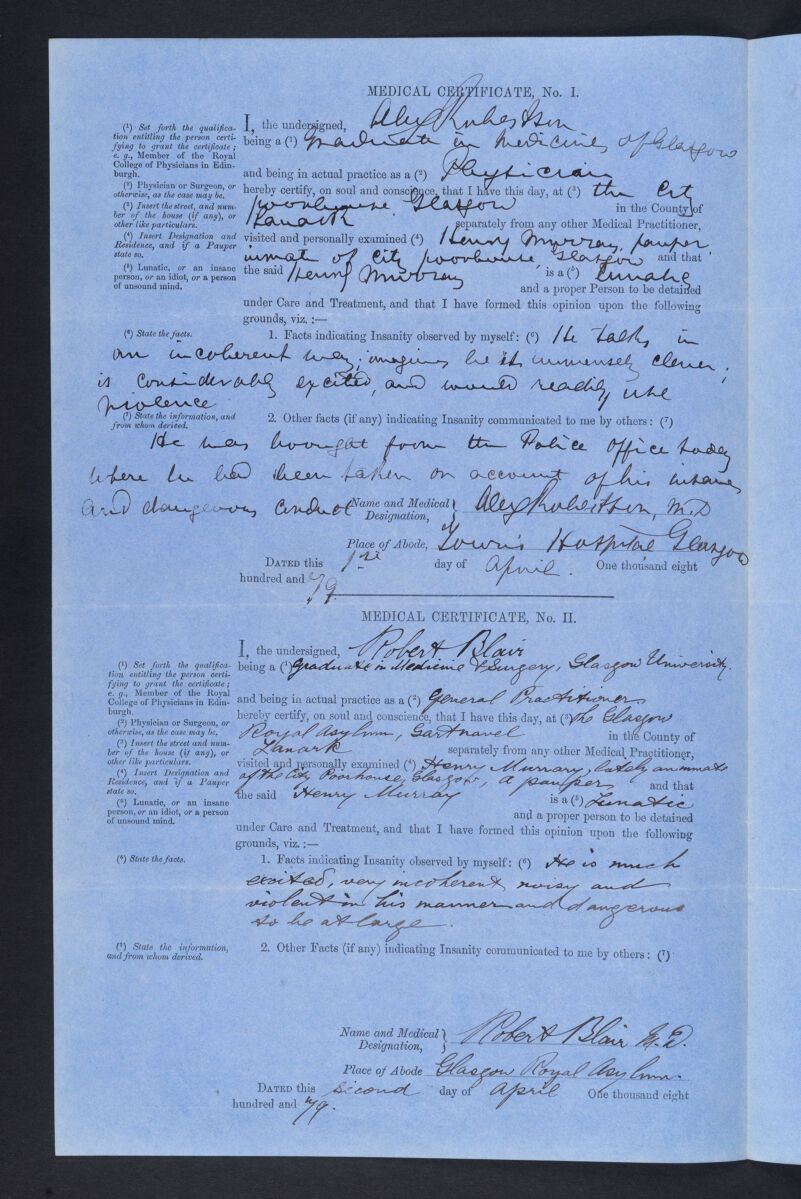 MEDICAL CERTIFICATE, No. I.
(1) Set forth the qualifica-
tion entitling the person certi-
fying to grant the certificate;
e. g., Member of the Royal
College of Physicians in Edin-
burgh.
(2) Physician or Surgeon, or
otherwise, as the case may be.
(3) Insert the street, and num-
ber of the house (if any), or
other like particulars.
(4) Insert Designation and
Residence, and if a Pauper
state so.
(5) Lunatic, or an insane
person, or an idiot, or a person
of unsound mind.
I, the undersigned, Alex Robertson
being a (1) Graduate in Medicine of Glasgow
and being in actual practice as a (2) Physician
hereby certify, on soul and conscience, that I have this day, at (3) the City
Poorhouse Glasgow in the County of
Lanark separately from any other Medical Practitioner,
visited and personally examined (4) Henry Murray, pauper
inmate of City Poorhouse, Glasgow and that
the said Henry Murray is a (5) Lunatic
and a proper Person to be detained
under Care and Treatment, and that I have formed this opinion upon the following
grounds, viz.:—
(6) State the facts.
1. Facts indicating Insanity observed by myself: (6) He talks in
an incoherent way; imagines he is immensely clever;
is considerably excited, and would readily use
violence
(7) State the information, and
from whom derived.
2. Other facts (if any) indicating Insanity communicated to me by others: (7)
He was brought from the Police Office today
where he had been taken on account of his insane
and dangerous conduct
Name and Medical Designation, Alex Robertson, M.D
Place of Abode, Town's Hospital Glasgow
DATED this 1st day of April. One thousand eight
hundred and 79
MEDICAL CERTIFICATE, No. II.
(1) Set forth the qualifica-
tion entitling the person certi-
fying to grant the certificate;
e. g., Member of the Royal
College of Physicians in Edin-
burgh.
(2) Physician or Surgeon, or
otherwise, as the case may be.
(3) Insert the street and num-
ber of the house (if any), or
other like particulars.
(4) Insert Designation and
Residence, and if a Pauper
state so.
(5) Lunatic, or an insane
person, or an idiot, or a person
of unsound mind.
I, the undersigned, Robert Blair
being a (1) Graduate in Medicine & Surgery, Glasgow University.
and being in actual practice as a (2) General Practitioner
hereby certify, on soul and conscience, that I have this day, at (3) the Glasgow
Royal Asylum, Gartnavel in the County of
Lanark separately from any other Medical Practitioner,
visited and personally examined (4) Henry Murray, lately an inmate
of the City Poorhouse, Glasgow, a pauper and that
the said Henry Murray is a (5) Lunatic
and a proper person to be detained
under Care and Treatment, and that I have formed this opinion upon the following
grounds, viz.:—
(6) State the facts.
1. Facts indicating Insanity observed by myself: (6) He is much
excited, very incoherent noisy and
violent in his manner and dangerous
to be at large.
(7) State the information,
and from whom derived.
2. Other Facts (if any) indicating Insanity communicated to me by others: (7)
Name and Medical Designation, Robert Blair M.D.
Place of Abode Glasgow Royal Asylum.
DATED this second day of April One thousand eight
hundred and 79.